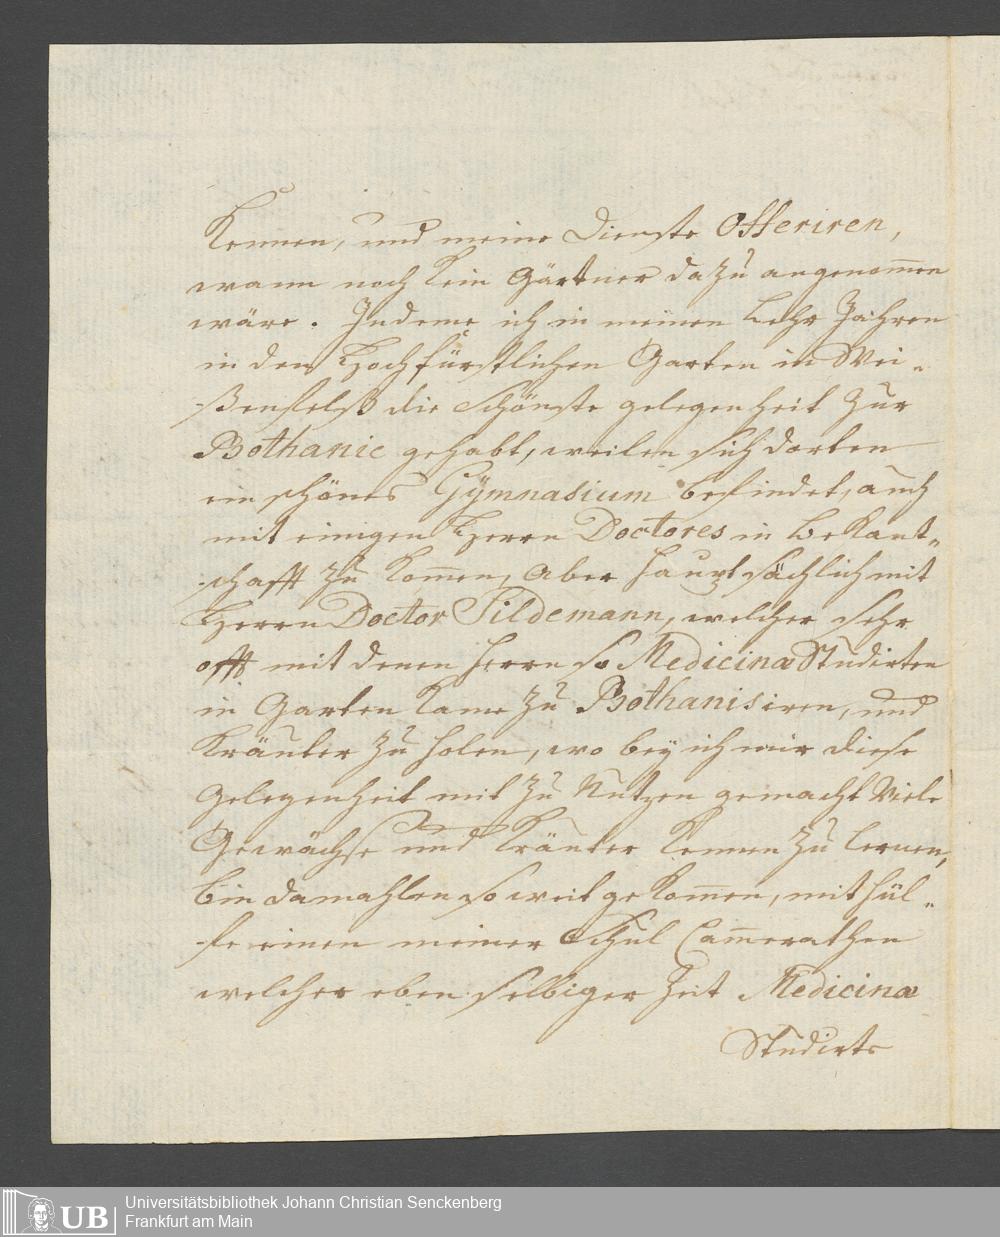 Kennen, und meine Dienste Offeriren,
wann noch kein Gärtner dazu angenom̅en
wäre. Indeme ich in meinen Lehr Jahren
in den Hochfürstlichen Garten in Wei-
ßenfelß die schönste gelegenheit zur
Bothanic gehabt, weilen sich dorten
ein schönes Gÿmnasium befindet, auch
mit einigen Herrn Doctores in bekant-
schafft zu kom̅en, aber hauptsächlich mit
Herrn Doctor Sildemann, welcher sehr
offt mit denen Herrn so Medicina Studirten
in Garten kame zu Bothanisiren, und
Kräuter zu holen, wo beÿ ich mir diese
gelegenheit mit zu Nutzen gemacht viele
Gewächse und Kräuter Kennen zu lernen,
bin damahlen so weit gekom̅en, mit hül-
fe einen meiner Schul Cam̅erathen
welcher eben selbiger Zeit Medicina
Studirte
UB
Universitätsbibliothek Johann Christian Senckenberg
Frankfurt am Main